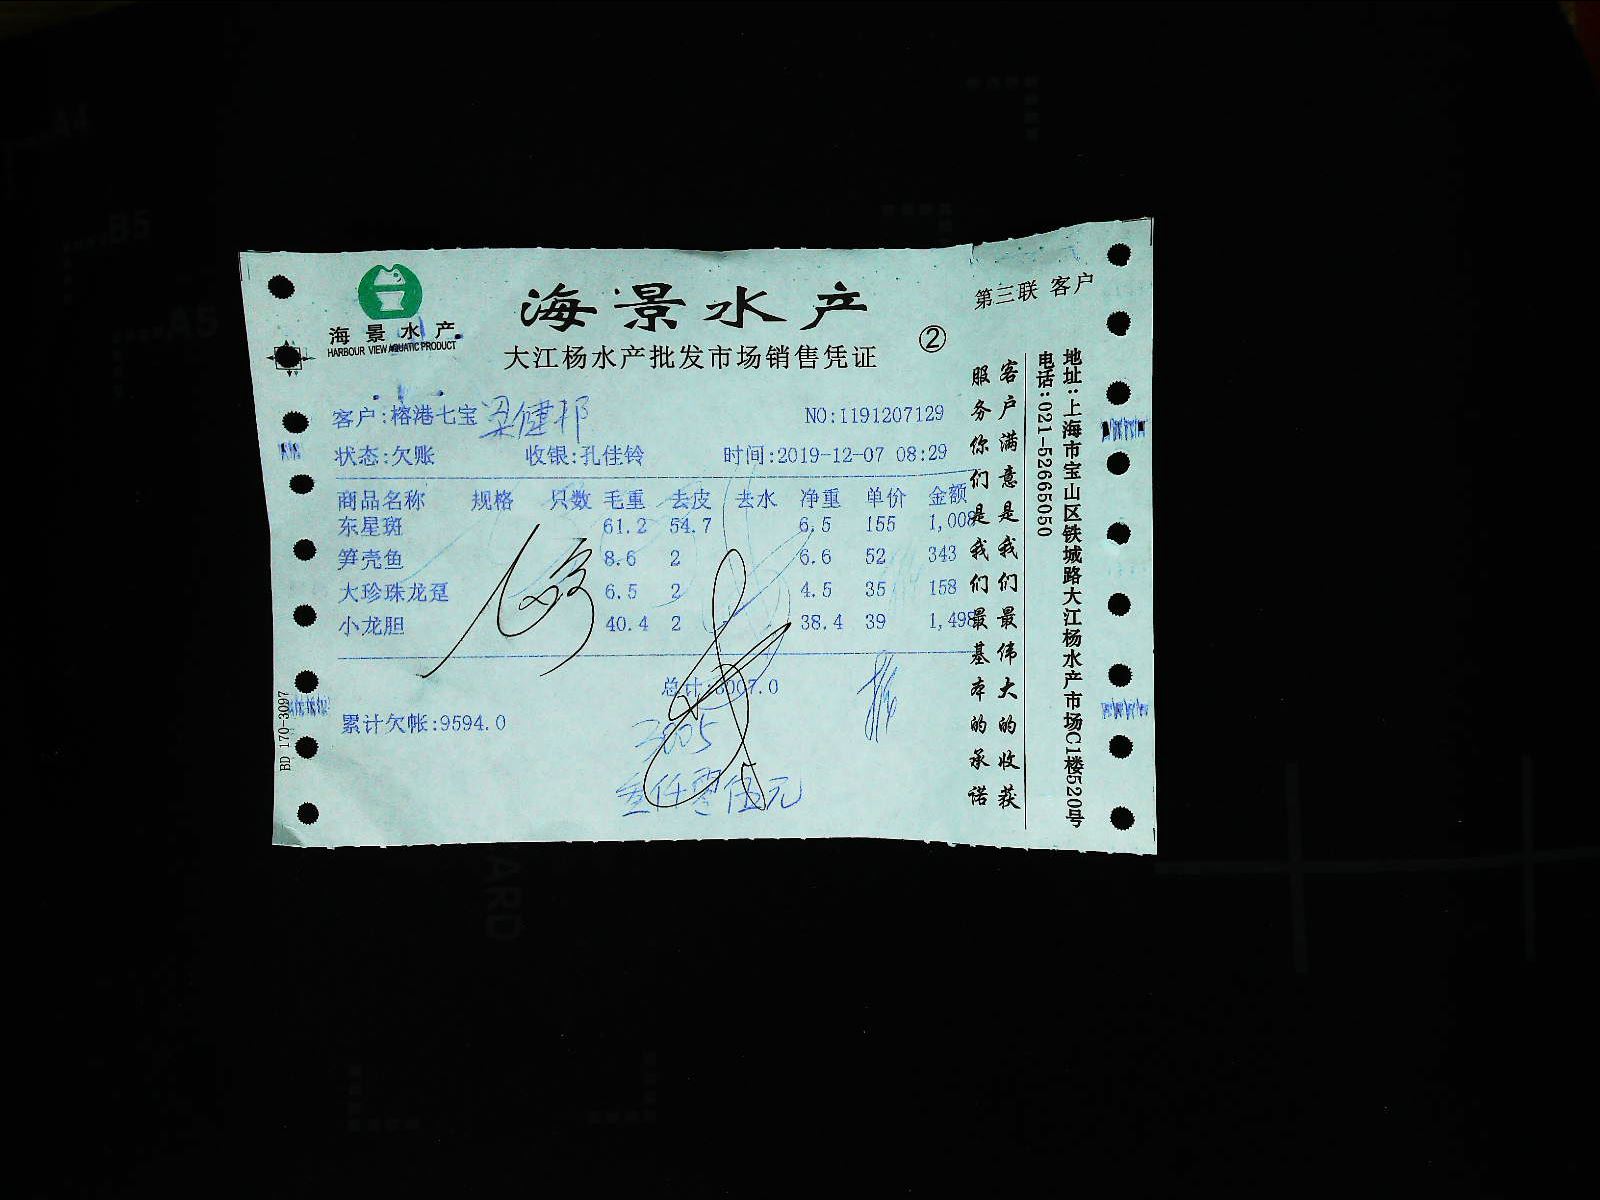 海景水产
HARBOUR VIEW AQUATIC PRODUCT
海景水产
大江杨水产批发市场销售凭证
②
第三联 客户
客户:榕港七宝 梁健邦
NO:1191207129
状态:欠账 收银:孔佳铃 时间:2019-12-07 08:29
商品名称 规格 只数 毛重 去皮 去水 净重 单价 金额
东星斑 61.2 54.7 6.5 155 1,008
笋壳鱼 8.6 2 6.6 52 343
大珍珠龙趸 6.5 2 4.5 35 158
小龙胆 40.4 2 38.4 39 1,498
总计:3007.0
累计欠帐:9594.0
3005
叁仟零伍元
客户满意是我们最伟大的收获
服务你们是我们最基本的承诺
地址:上海市宝山区铁城路大江杨水产市场C1楼520号
电话:021-52665050
BD 170-3097
A4
B5
A5
ARD